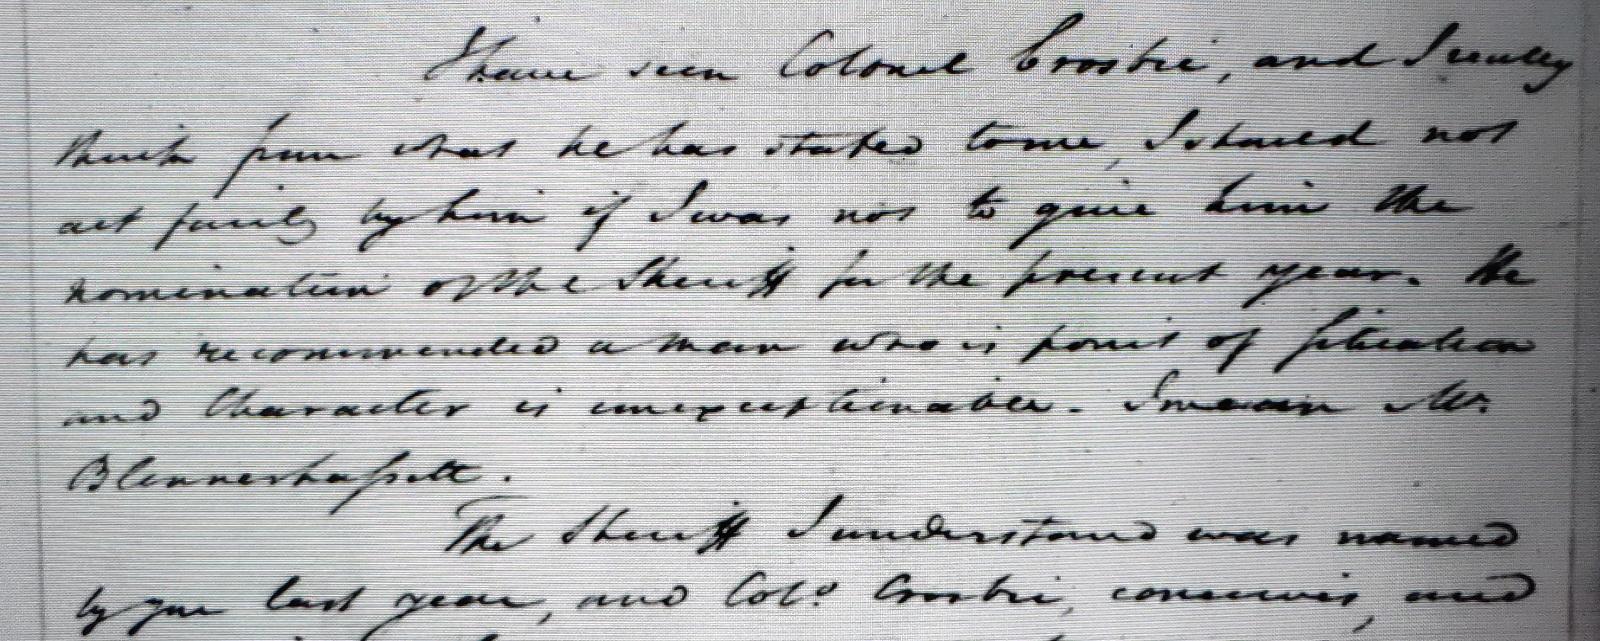 I have seen Colonel Crosbie, and I really
think from what he has stated to me, I should not
act fairly by him if I was not to give him the
nomination of the Sheriff for the present year. He
has recommended a man who is point of situation
and Character is unexceptionable. I mean Mr.
Blennerhassett.
The Sheriff I understand was named
by you last year, and Colo. Crosbie, conceives, and